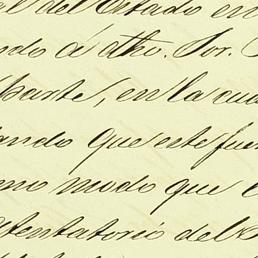 al del Estado en
ndo á dho. Sor.
parte, en la cua
ando que este fue
mo modo que e
tentatorio del